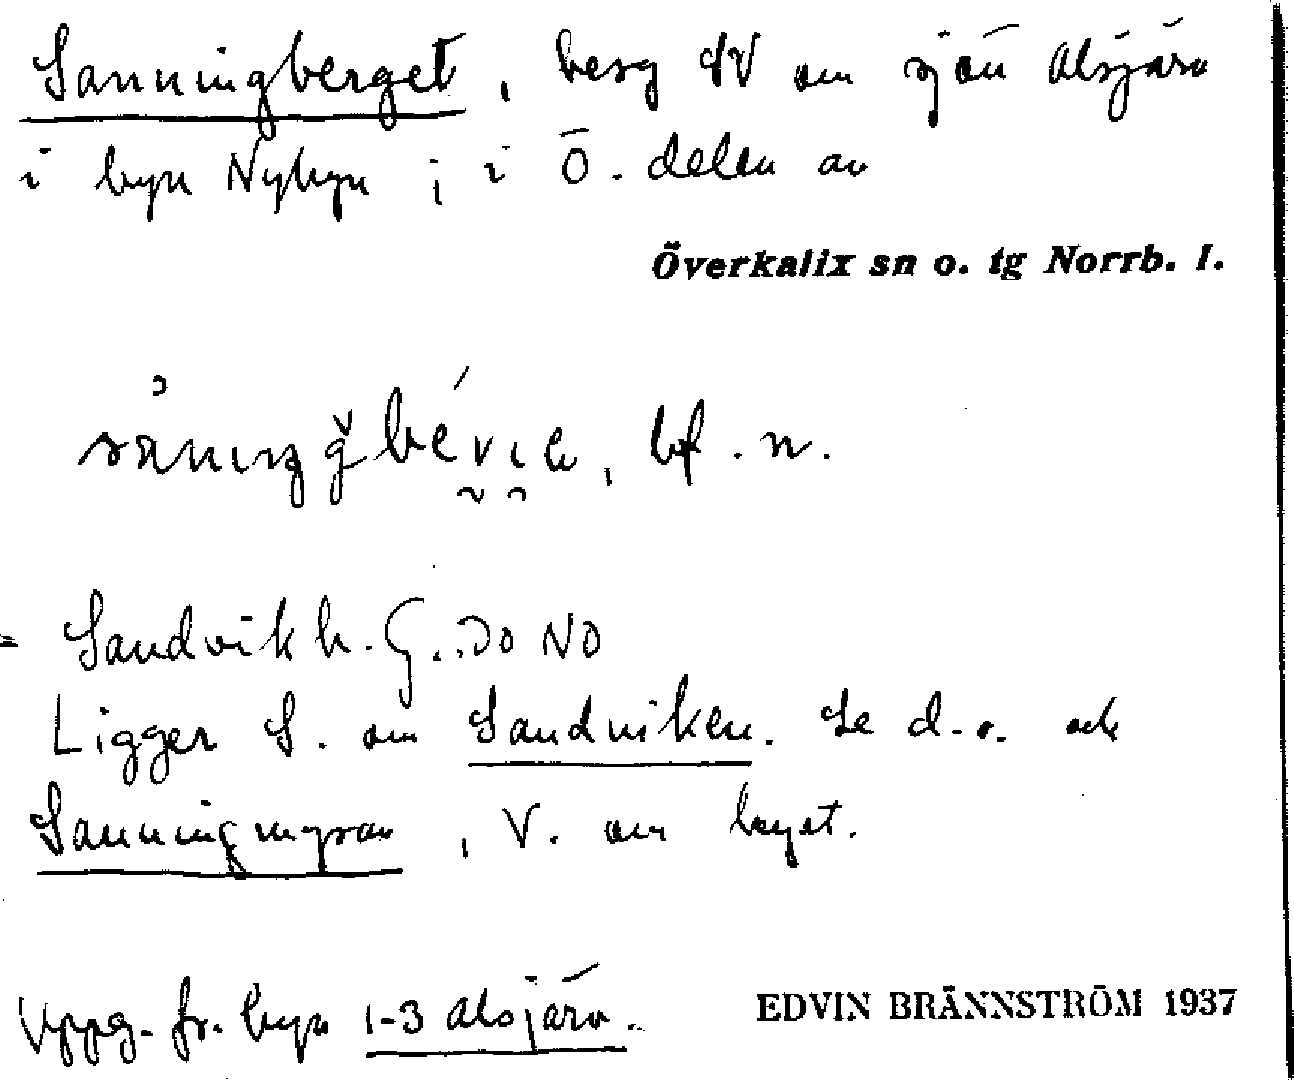 Sanningberget, berg SV om sjön Alsjärv
i byn Nybyn; i Ö. delen av
Överkalix sn o. tg Norrb. l.
bf. n.
= Sandvik h. G. NO
Ligger S. om Sandviken. Se d.o. och
Sanningmyran, V. om berget.
Uppg. fr. byn 1-3 Alsjärv.
EDVIN BRÄNNSTRÖM 1937